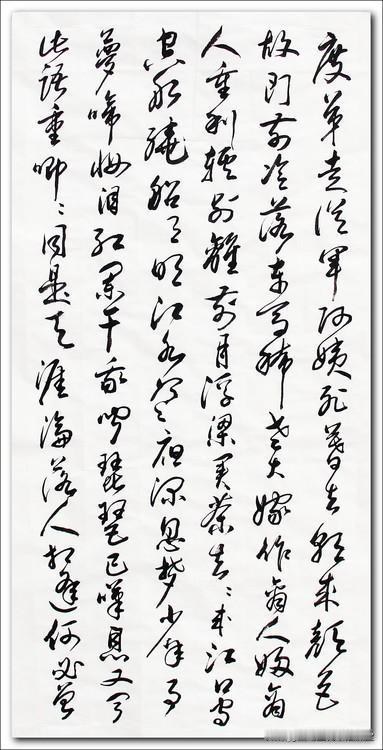 度弟走從軍阿姨死暮去朝來顏色
故門前冷落車馬稀老大嫁作商人婦商
人重利輕別離前月浮梁買茶去々來江口守
空船繞船月明江水寒夜深忽夢少年事
夢啼妝淚紅闌干我聞琵琶已嘆息又聞
此語重唧々同是天涯淪落人相逢何必曾